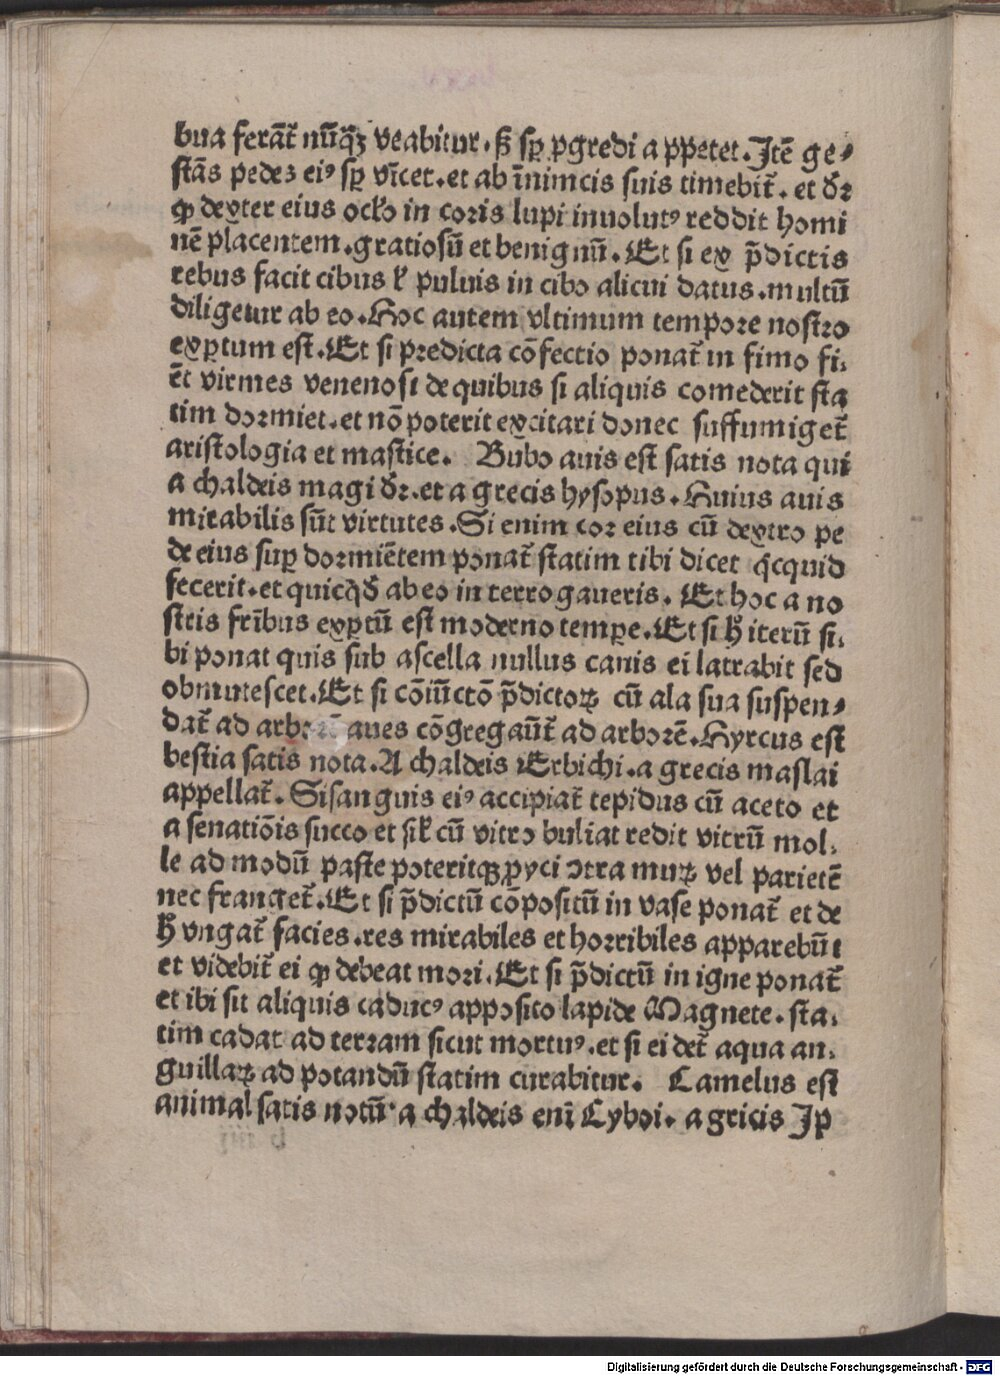 bua ferãt̃ nũq̃ꝫ veabitur. ß sꝑ ꝓgredi a ppetet. Itẽ ge⸗
stãs pedes eiꝰ sꝑ vĩcet. et ab ĩnimcis suis timebit̃. et dr̃
ꝙ dexter eius oclo in coris lupi inuolutꝰ reddit homi
nẽ placentem. gratiosũ et benignũ. Et si ex p̃dictis
rebus facit cibus ł puluis in cibo alicui datus. multũ
diligetur ab eo. Hoc autem vltimum tempore nostro
exꝑtum est. Et si predicta cõfectio ponat̃ in fimo fi⸗
ẽt virmes venenosi de quibus si aliquis comederit sta
tim dormiet. et nõ poterit excitari donec suffumiget̃
aristologia et mastice. Bubo auis est satis nota qui
a chaldeis magi dr̃. et a grecis hysopus. Huius auis
mirabilis sũt virtutes. Si enim cor eius cũ dextro pe
de eius suꝑ dormiẽtem ponat̃ statim tibi dicet q̃cquid
fecerit. et quicq̃d ab eo in terrogaueris. Et hoc a no
stris frĩbus exꝑtũ est moderno temꝑe. Et si h̃ iterũ si⸗
bi ponat quis sub ascella nullus canis ei latrabit sed
obmutescet. Et si cõiũctõ p̃dictoꝝ cũ ala sua suspen⸗
dat̃ ad arborẽ aues cõgregaũt̃ ad arborẽ. Hyrcus est
bestia satis nota. A chaldeis Erbichi. a grecis maslai
appellat̃. Si sanguis eiꝰ accipiat̃ tepidus cũ aceto et
a senatiõis succo et sił cũ vitro buliat redit vitrũ mol⸗
le ad modũ paste poteritqꝫ ꝓyci ꝯtra murꝝ vel parietẽ
nec franget̃. Et si p̃dictũ cõpositũ in vase ponat̃ et de
h̃ vngat̃ facies. res mirabiles et horribiles apparebũt
et videbit̃ ei ꝙ debeat mori. Et si p̃dictũ in igne ponat̃
et ibi sit aliquis caducꝰ apposito lapide Magnete. sta⸗
tim cadat ad terram sicut mortuꝰ. et si ei det̃ aqua an⸗
guillaꝝ ad potandũ statim curabitur. Camelus est
animal satis notũ a chaldeis enĩ Cyboi. a gricis Iꝑ
Digitalisierung gefördert durch die Deutsche Forschungsgemeinschaft - DFG